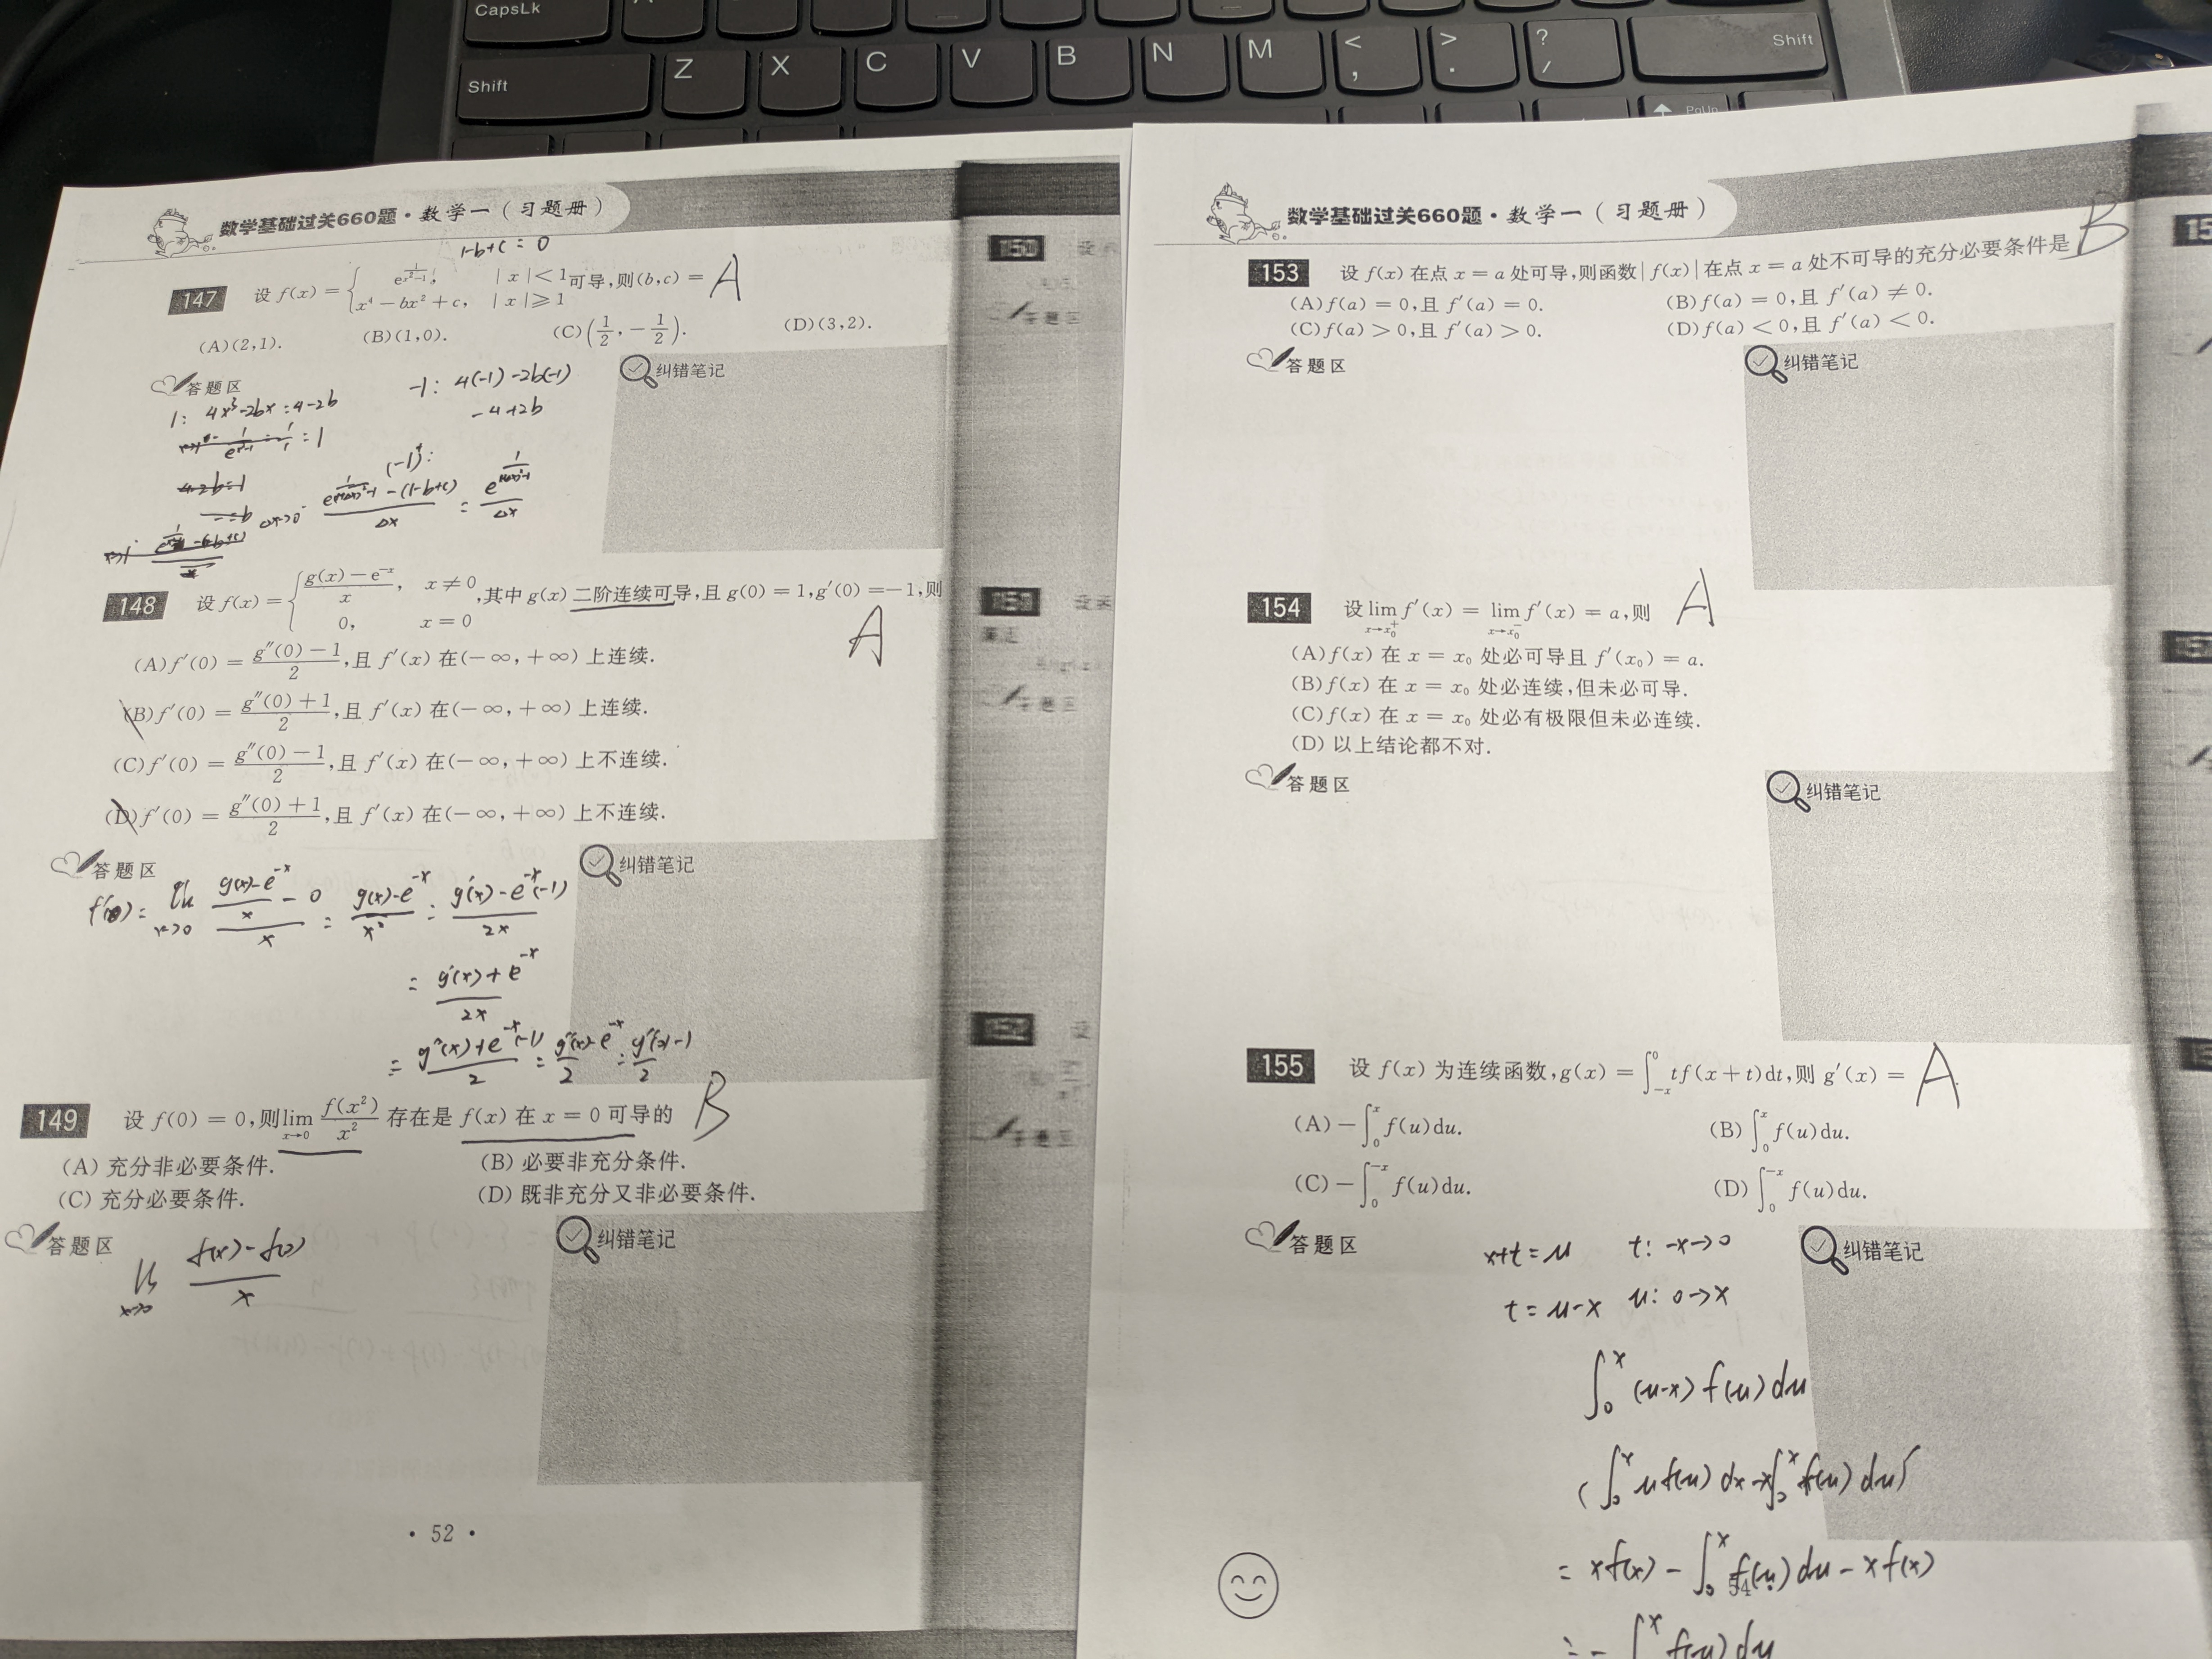 CapsLk
Shift Z X C V B N M < , > . ? / Shift
PgUp
数学基础过关660题·数学一(习题册)
1-b+c=0
147 设 f(x) = { e^{1/(x²-1)}, |x|<1 可导,则(b,c) = A
x⁴-bx²+c, |x|≥1
(A)(2,1). (B)(1,0). (C)(1/2,-1/2). (D)(3,2).
答题区 纠错笔记
1: 4x³-2bx=4-2b
-1: 4(-1)-2b(-1)
-4+2b
(-1)⁺:
148 设 f(x) = { (g(x)-e^{-x})/x, x≠0 ,其中 g(x) 二阶连续可导,且 g(0)=1,g′(0)=-1,则
0, x=0
A
(A) f′(0) = (g″(0)-1)/2,且 f′(x) 在(-∞,+∞) 上连续.
(B) f′(0) = (g″(0)+1)/2,且 f′(x) 在(-∞,+∞) 上连续.
(C) f′(0) = (g″(0)-1)/2,且 f′(x) 在(-∞,+∞) 上不连续.
(D) f′(0) = (g″(0)+1)/2,且 f′(x) 在(-∞,+∞) 上不连续.
答题区 纠错笔记
= (g′(x)+e^{-x})/2x
149 设 f(0)=0,则 lim_{x→0} f(x²)/x² 存在是 f(x) 在 x=0 可导的 B
(A) 充分非必要条件. (B) 必要非充分条件.
(C) 充分必要条件. (D) 既非充分又非必要条件.
答题区 纠错笔记
· 52 ·
150 设
151 设
152 设
数学基础过关660题·数学一(习题册)
153 设 f(x) 在点 x=a 处可导,则函数|f(x)|在点 x=a 处不可导的充分必要条件是 B
(A) f(a)=0,且 f′(a)=0. (B) f(a)=0,且 f′(a)≠0.
(C) f(a)>0,且 f′(a)>0. (D) f(a)<0,且 f′(a)<0.
答题区 纠错笔记
154 设 lim_{x→x₀⁺} f′(x) = lim_{x→x₀⁻} f′(x) = a,则 A
(A) f(x) 在 x=x₀ 处必可导且 f′(x₀)=a.
(B) f(x) 在 x=x₀ 处必连续,但未必可导.
(C) f(x) 在 x=x₀ 处必有极限但未必连续.
(D) 以上结论都不对.
答题区 纠错笔记
155 设 f(x) 为连续函数,g(x) = ∫_{-x}^{0} tf(x+t)dt,则 g′(x) = A
(A) -∫_0^x f(u)du. (B) ∫_0^x f(u)du.
(C) -∫_0^{-x} f(u)du. (D) ∫_0^{-x} f(u)du.
答题区 纠错笔记
x+t=u t: -x→0
t=u-x u: 0→x
∫_0^x (u-x) f(u) du
(∫_0^x u f(u) dx - x∫_0^x f(u) du)′
= x f(x) - ∫_0^x f(u) du - x f(x)
54
= -∫^x f(u) du